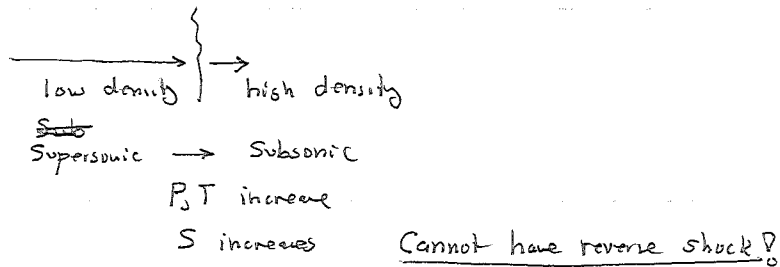 low density high density
Sub
Supersonic → Subsonic
P, T increase
S increases Cannot have reverse shock!